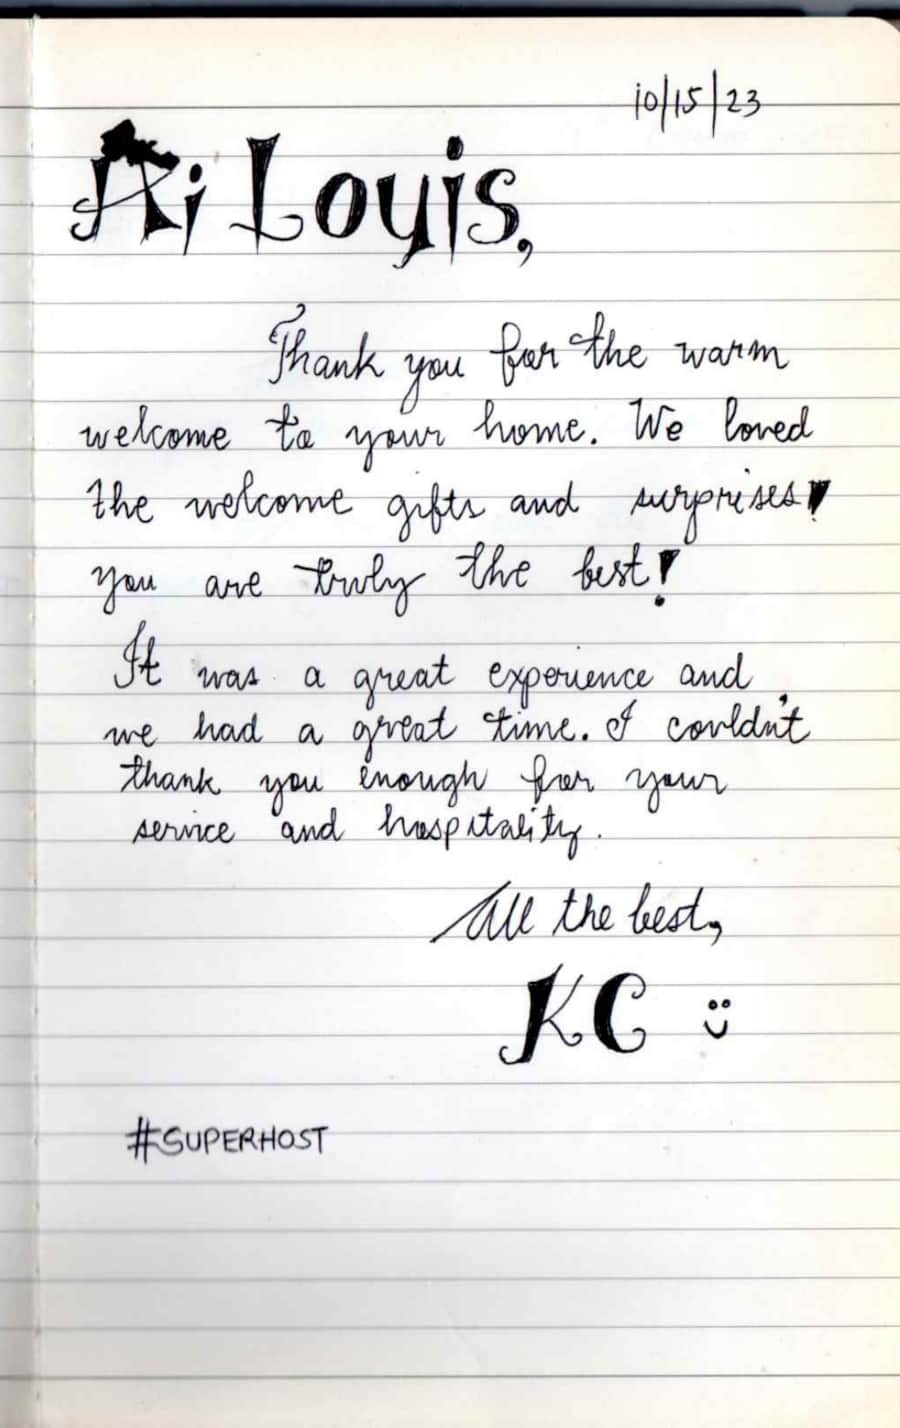 10/15/23
Hi Louis,
Thank you for the warm
welcome to your home. We loved
the welcome gifts and surprises!
you are truly the best!
It was a great experience and
we had a great time. I couldn't
thank you enough for your
service and hospitality.
All the best,
KC :)
#SUPERHOST